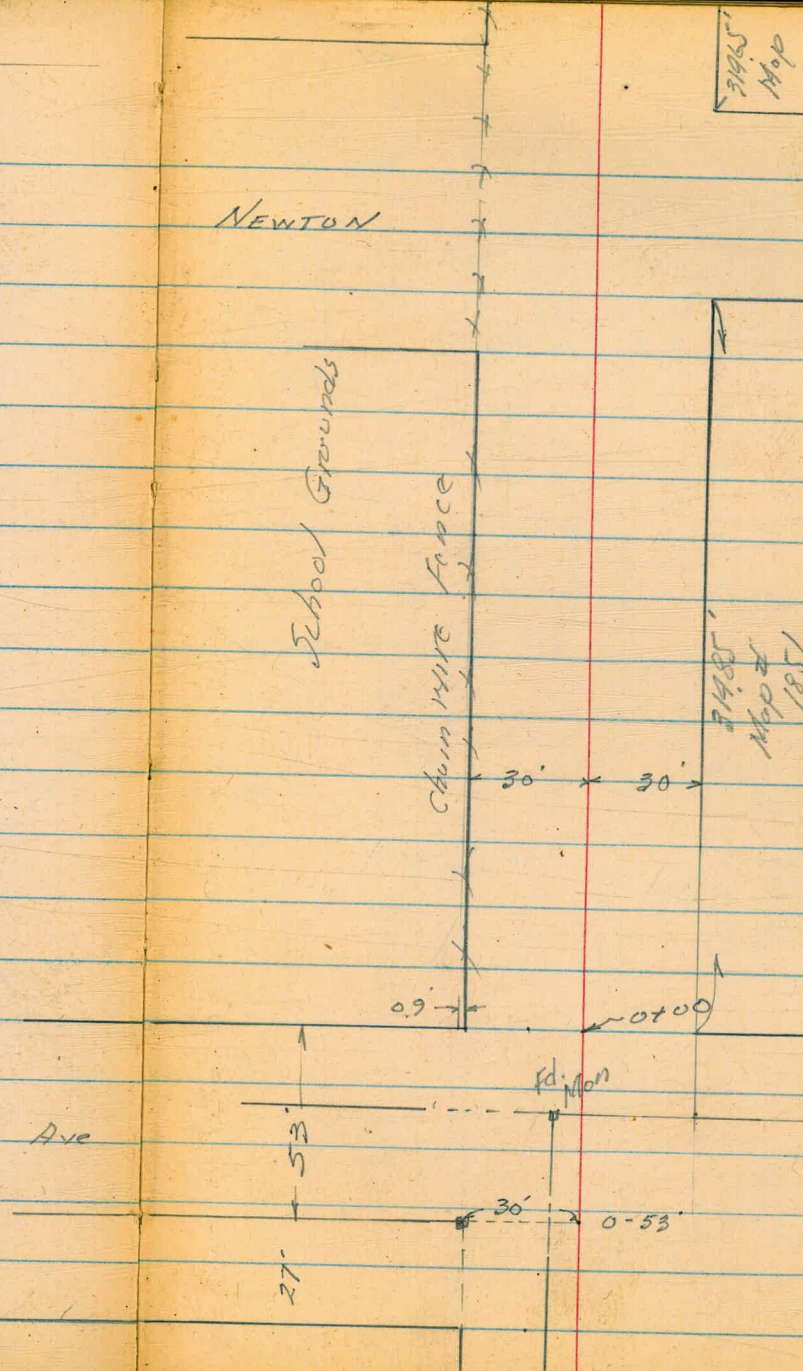 319.65'
Map
NEWTON
School Grounds
Chain Wire Fence
319.85'
Map #
1851
30' 30'
0.9'
0+00
Fd. Mon
Ave
53'
30' 0-53'
27'